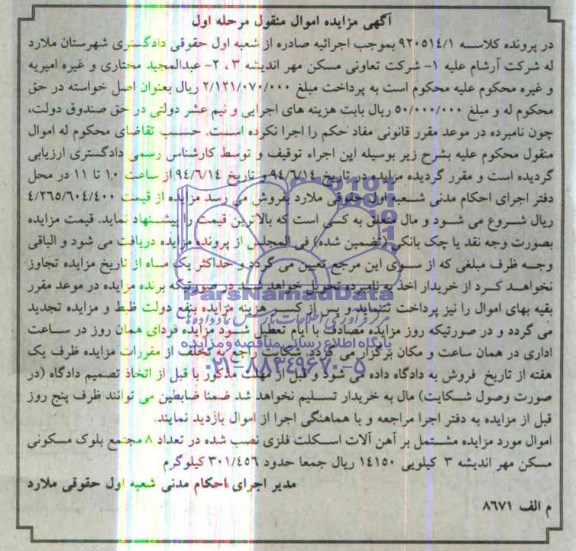 آگهی مزایده اموال منقول مرحله اول
در پرونده کلاسه ۹۲۰۵۱۴/۱ بموجب اجرائیه صادره از شعبه اول حقوقی دادگستری شهرستان ملارد
له شرکت آرشام علیه ۱- شرکت تعاونی مسکن مهر اندیشه ۳ ، ۲- عبدالمجید مختاری و غیره امیریه
و غیره محکوم علیه محکوم است به پرداخت مبلغ ۲/۱۲۱/۰۷۰/۰۰۰ ریال بعنوان اصل خواسته در حق
محکوم له و مبلغ ۵۰/۰۰۰/۰۰۰ ریال بابت هزینه های اجرایی و نیم عشر دولتی در حق صندوق دولت،
چون نامبرده در موعد مقرر قانونی مفاد حکم را اجرا نکرده است. حسب تقاضای محکوم له اموال
منقول محکوم علیه بشرح زیر بوسیله این اجراء توقیف و توسط کارشناس رسمی دادگستری ارزیابی
گردیده است و مقرر گردیده مزایده در تاریخ ۹۴/۶/۱۴ و تاریخ ۹۴/۶/۱۴ از ساعت ۱۰ تا ۱۱ در محل
دفتر اجرای احکام مدنی شعبه اول حقوقی ملارد بفروش می رسد مزایده از قیمت ۴/۲۶۵/۶۰۴/۴۰۰
ریال شروع می شود و مال متعلق به کسی است که بالاترین قیمت را پیشنهاد نماید. قیمت مزایده
بصورت وجه نقد یا چک بانکی (تضمین شده) فی المجلس از برنده مزایده دریافت می شود و الباقی
وجه ظرف مبلغی که از سوی این مرجع تعیین می گردد و حداکثر یک ماه از تاریخ مزایده تجاوز
نخواهد کرد از خریدار اخذ به نامبرده تحویل خواهد شد. در صورتیکه برنده مزایده در موعد مقرر
بقیه بهای اموال را نیز پرداخت ننماید و پس از کسر هزینه مزایده بنفع دولت ظبط و مزایده تجدید
می گردد و در صورتیکه روز مزایده مصادف با ایام تعطیل شود مزایده فردای همان روز در ساعت
اداری در همان ساعت و مکان برگزار می گردد. شکایت راجع به تخلف از مقررات مزایده ظرف یک
هفته از تاریخ فروش به دادگاه داده می شود و قبل از مهلت مذکور یا قبل از اتخاذ تصمیم دادگاه (در
صورت وصول شکایت) مال به خریدار تسلیم نخواهد شد ضمنا ضابطین می توانند ظرف پنج روز
قبل از مزایده به دفتر اجرا مراجعه و با هماهنگی اجرا از اموال بازدید نمایند.
اموال مورد مزایده مشتمل بر آهن آلات اسکلت فلزی نصب شده در تعداد ۸ مجتمع بلوک مسکونی
مسکن مهر اندیشه ۳ کیلویی ۱۴۱۵۰ ریال جمعا حدود ۳۰۱/۴۵۶ کیلوگرم
مدیر اجرای احکام مدنی شعبه اول حقوقی ملارد
م الف ۸۶۷۱
ParsNamadData
پایگاه اطلاع رسانی مناقصه و مزایده
۰۲۱-۸۸۳۴۹۶۷۰-۵